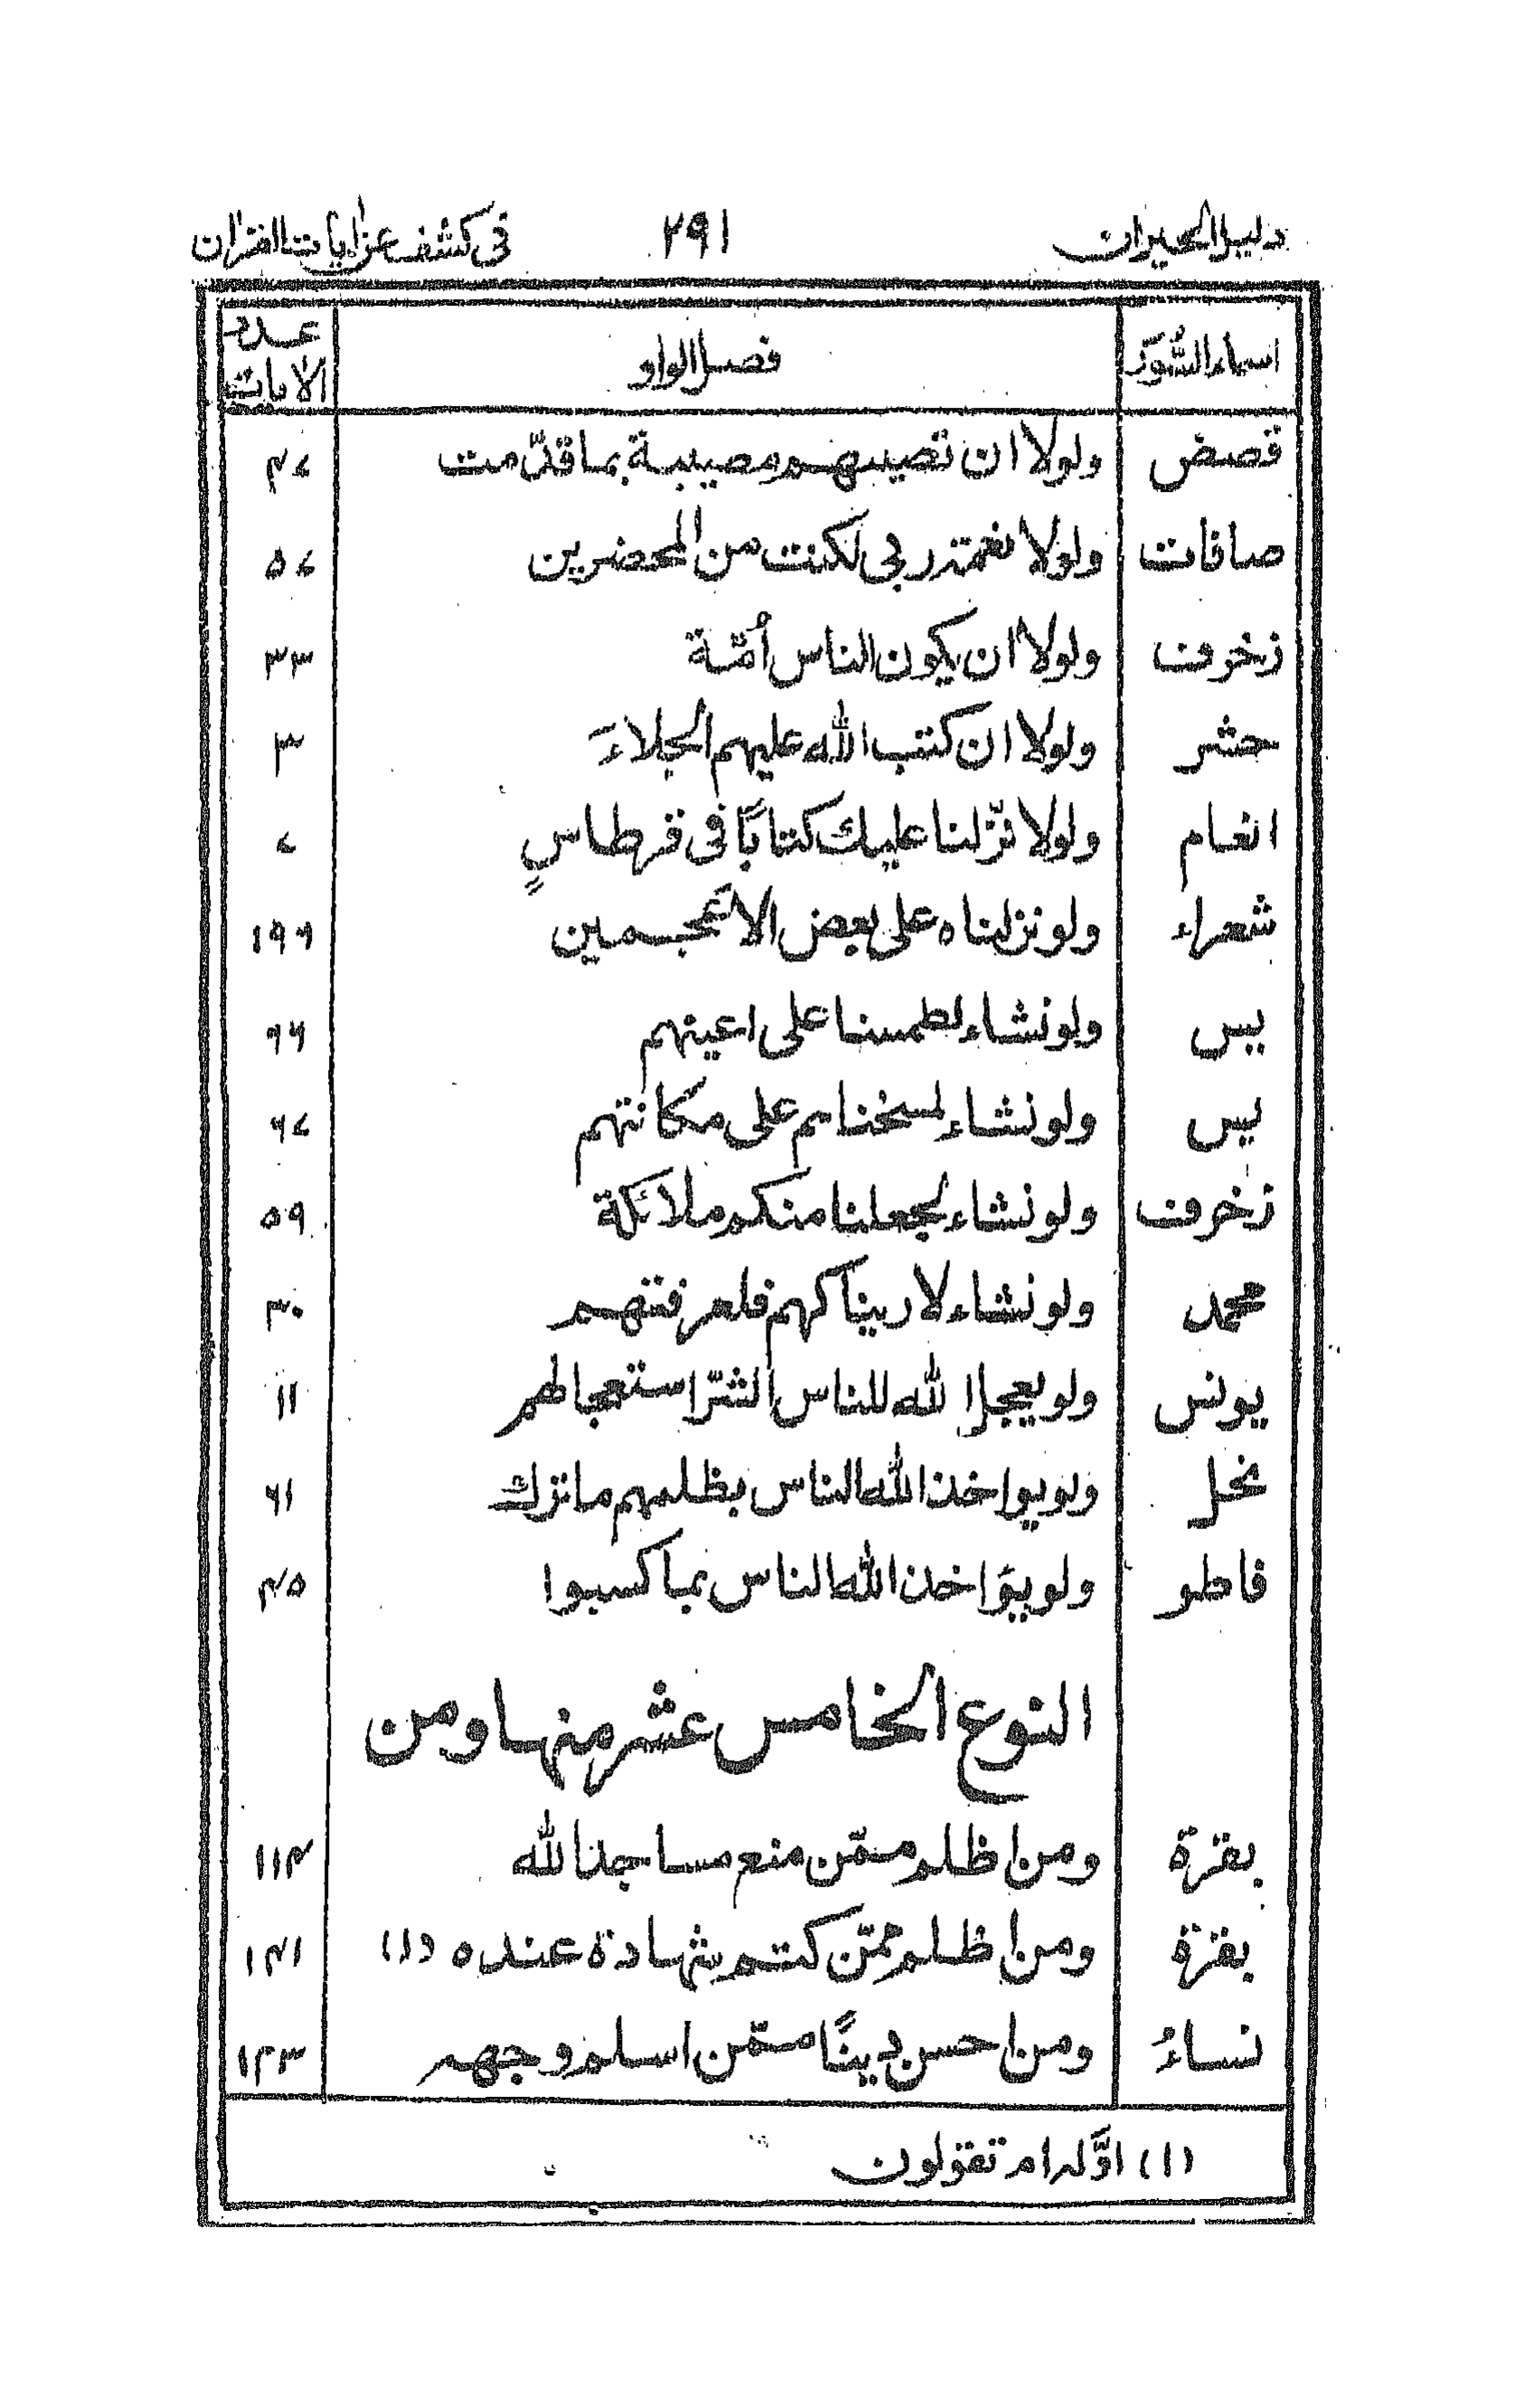 دليل الحيران ٢٩١ فى كشف عن ايات القران
اسماء السُّوَر فصل الواو عدد الايات
قصص ولولا ان تصيبهم مصيبة بما قدّمت ۴۷
صافات ولولا نعمة ربى لكنت من المحضرين ۵۷
زخرف ولولا ان يكون الناس أمّة ۳۳
حشر ولولا ان كتب الله عليهم الجلاءَ ۳
انعام ولولا نزّلنا عليك كتابًا فى قرطاسٍ ۷
شعراء ولو نزلناه على بعض الاعجمين ۱۹۸
يس ولو نشاء لطمسنا على اعينهم ۶۶
يس ولو نشاء لمسخناهم على مكانتهم ۶۷
زخرف ولو نشاء لجعلنا منكم ملائكة ۵۹
محمد ولو نشاء لاريناكهم فلعرفتهم ۳۰
يونس ولو يعجل الله للناس الشرّ استعجالهم ۱۱
نحل ولو يواخذ الله الناس بظلمهم ما ترك ۶۱
فاطر ولو يؤاخذ الله الناس بما كسبوا ۴۵
النوع الخامس عشر منها ومن
بقرة ومن اظلم ممّن منع مساجد الله ۱۱۴
بقرة ومن اظلم ممّن كتم شهادة عنده (۱) ۱۴۱
نساءُ ومن احسن دينًا ممّن اسلم وجهه ۱۲۳
(۱) اوّله ام تقولون